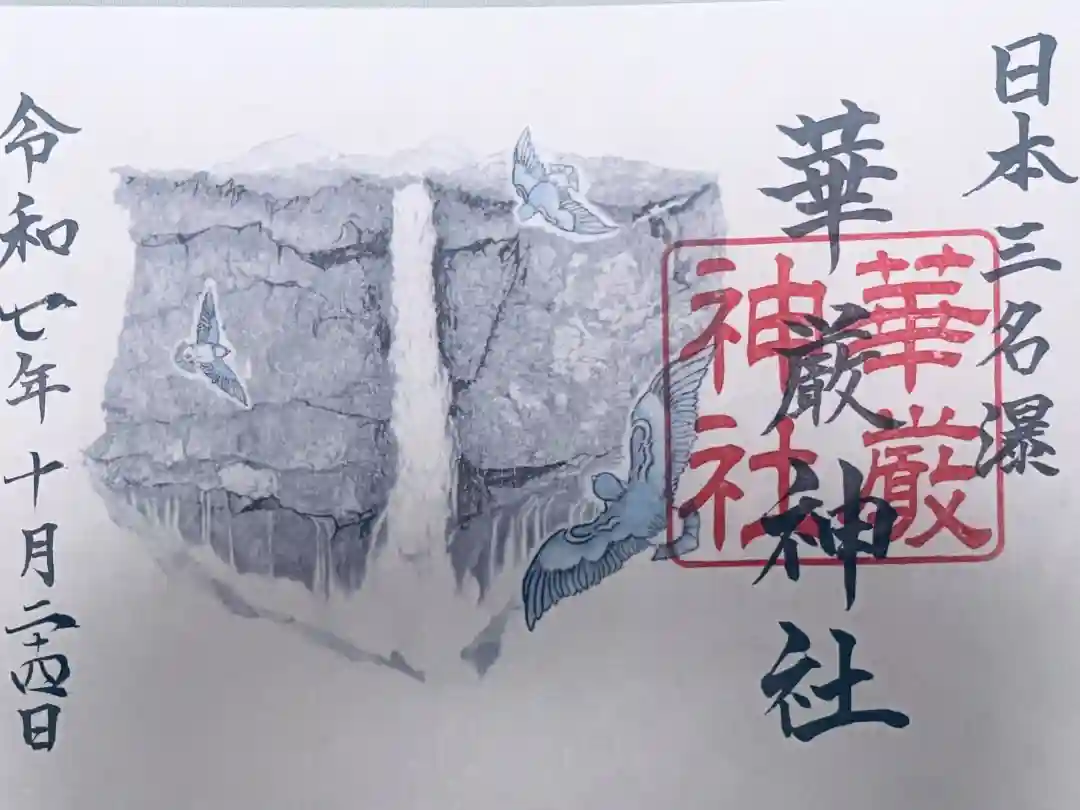 日本三名瀑
華厳神社
華厳
神社
令和七年十月二十四日